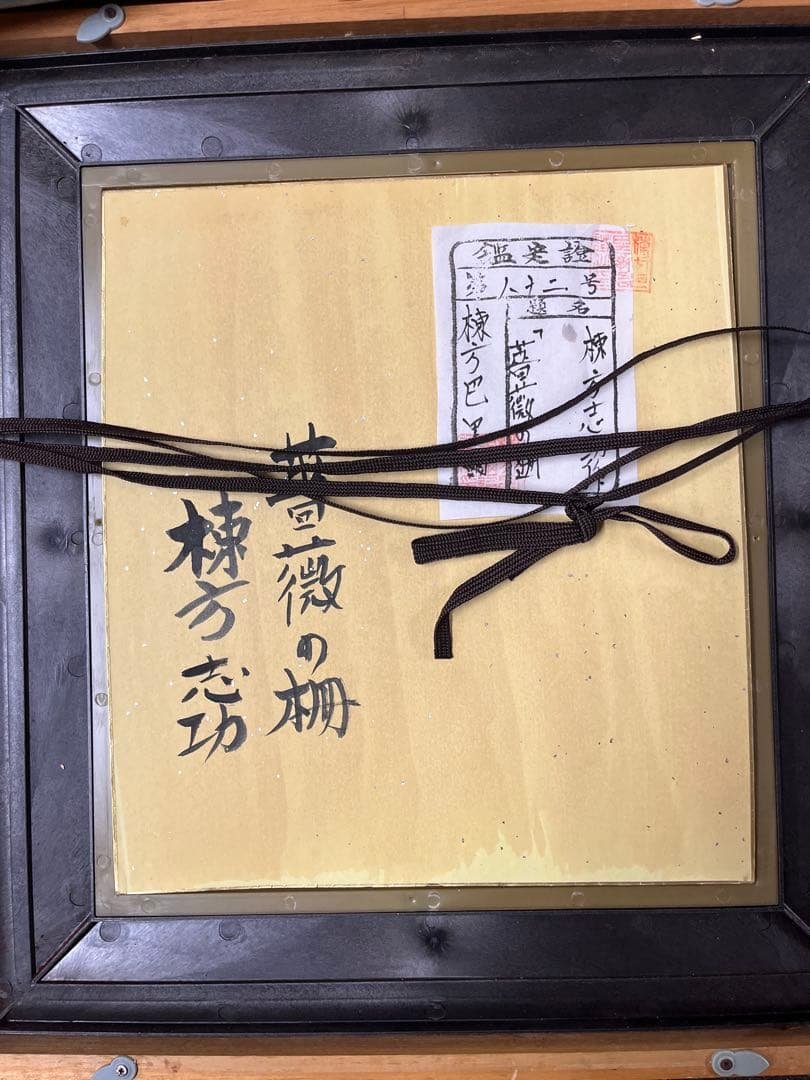 鑑定證
第八十二号
題名
棟方志功作
「薔薇の柵
棟方巴里爾
薔薇の柵
棟方志功